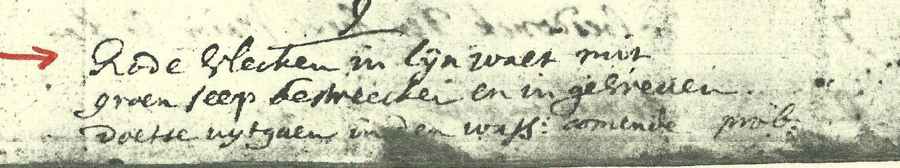 9
Rode vlecken in lijnwaet mit
groen seep bestreecken en in gewreven.
doetse uytgaen in den wass: comende prob.